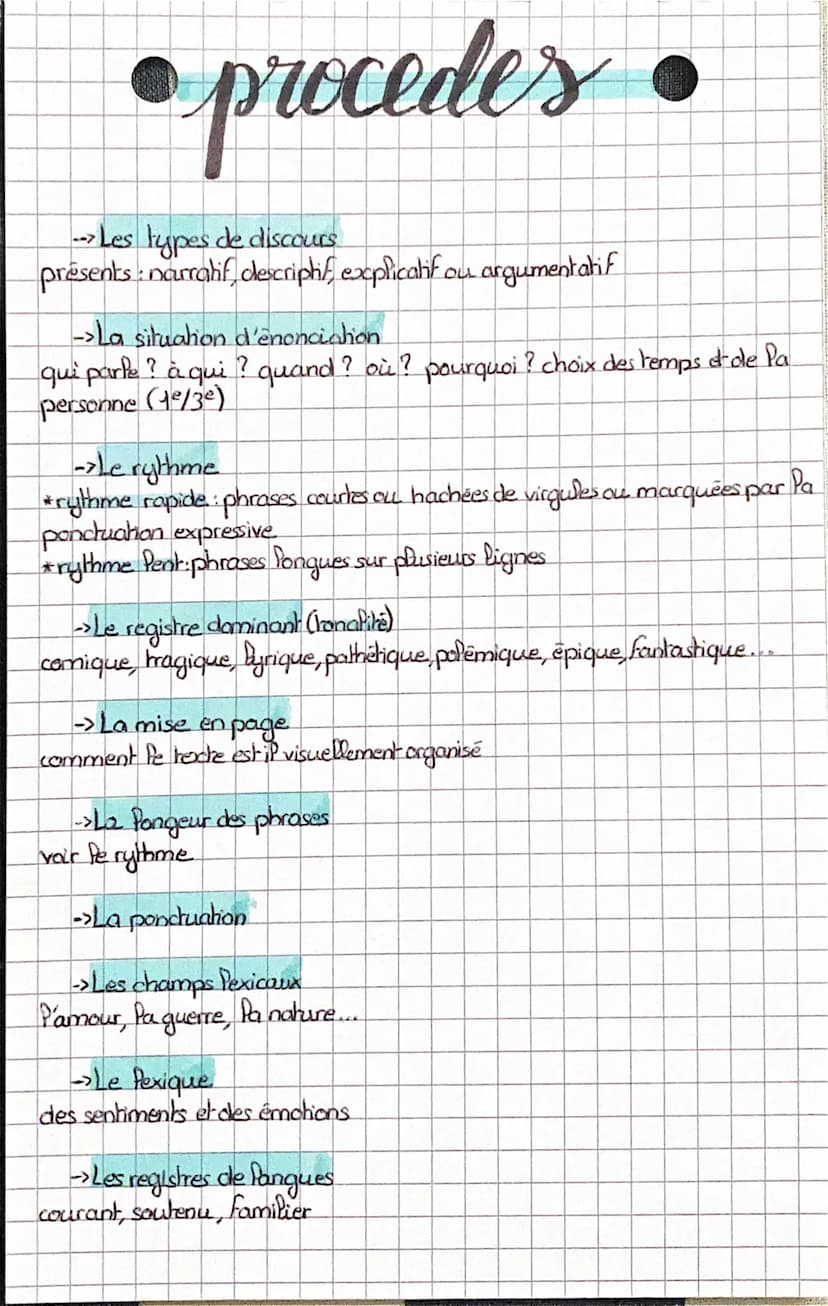 procedes
--> Les types de discours
présents : narratif, descriptif, explicatif ou argumentatif
-> La situation d'énonciation
qui parle ? à qui ? quand ? où ? pourquoi ? choix des temps et de la
personne (1e/3e)
-> Le rythme
*rythme rapide : phrases courtes ou hachées de virgules ou marquées par la
ponctuation expressive
*rythme lent : phrases longues sur plusieurs lignes
-> Le registre dominant (tonalité)
comique, tragique, lyrique, pathétique, polémique, épique, fantastique...
-> La mise en page
comment le texte est il visuellement organisé
-> La longeur des phrases
voir le rythme
-> La ponctuation
-> Les champs lexicaux
l'amour, la guerre, la nature...
-> Le lexique
des sentiments et des émotions
-> Les registres de langues
courant, soutenu, familier